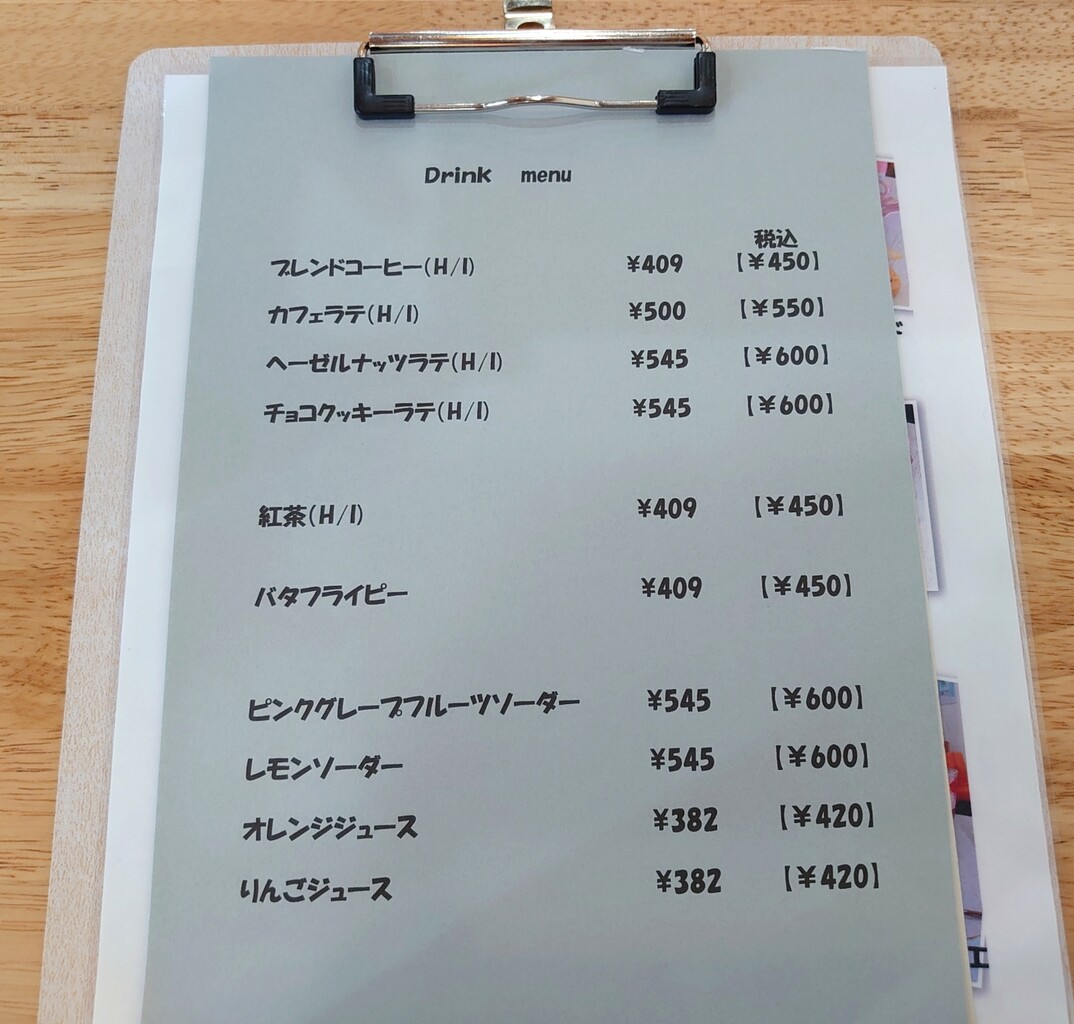 Drink menu
税込
ブレンドコーヒー(H/I) ¥409 【¥450】
カフェラテ(H/I) ¥500 【¥550】
ヘーゼルナッツラテ(H/I) ¥545 【¥600】
チョコクッキーラテ(H/I) ¥545 【¥600】
紅茶(H/I) ¥409 【¥450】
バタフライピー ¥409 【¥450】
ピンクグレープフルーツソーダー ¥545 【¥600】
レモンソーダー ¥545 【¥600】
オレンジジュース ¥382 【¥420】
りんごジュース ¥382 【¥420】